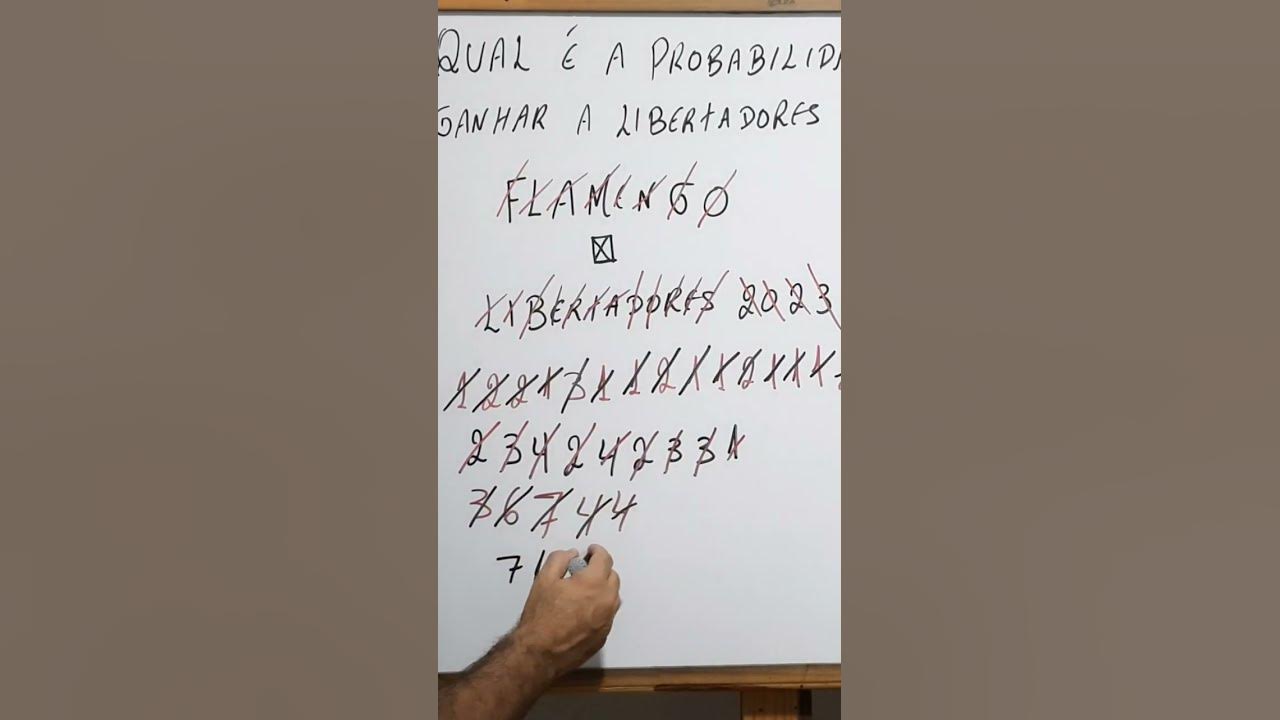 QUAL É A PROBABILIDA
GANHAR A LIBERTADORES
FLAMENGO
X
LIBERTADORES 2023
1 2 2 1 3 1 1 2 1 1 2 1 1 1
2 3 4 2 4 2 3 3 1
3 6 7 4 4
7